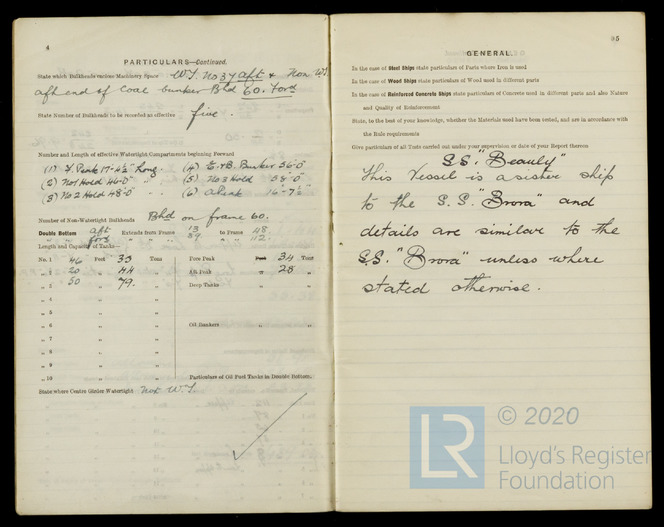 4
PARTICULARS—Continued.
State which Bulkheads enclose Machinery Space W.T. No 37 aft & Non. W.T.
aft end of Coal bunker Bhd 60. Ford
State Number of Bulkheads to be recorded as effective five.
Number and Length of effective Watertight Compartments beginning Forward
(1) F. Peak 17'-4½" Long. (4) E. & B. Bunker 56'-0"
(2) No 1 Hold 46'-0" " (5) No 3 Hold 58'-0"
(3) No 2 Hold 48'-0" " (6) A Peak 16'-7½"
Number of Non-Watertight Bulkheads Bhd on frame 60.
Double Bottom aft Extends from Frame 13 to Frame 48
" " ford " " 59 " 112.
Length and Capacity of Tanks—
No. 1 46 Feet 33 Tons Fore Peak Feet 34 Tons
" 2 20 " 44 " Aft Peak " 28 "
" 3 50 " 79. " Deep Tanks " "
" 4 " "
" 5 " "
" 6 " " Oil Bunkers " "
" 7 " "
" 8 " "
" 9 " "
" 10 " " Particulars of Oil Fuel Tanks in Double Bottom.
State where Centre Girder Watertight not W.T.
5
GENERAL.
In the case of Steel Ships state particulars of Parts where Iron is used
In the case of Wood Ships state particulars of Wood used in different parts
In the case of Reinforced Concrete Ships state particulars of Concrete used in different parts and also Nature
and Quality of Reinforcement
State, to the best of your knowledge, whether the Materials used have been tested, and are in accordance with
the Rule requirements
Give particulars of all Tests carried out under your supervision or date of your Report thereon
S.S. "Beauly"
This Vessel is a sister ship
to the S.S. "Brora" and
details are similar to the
S.S. "Brora" unless where
stated otherwise.
© 2020
LR
Lloyd's Register
Foundation